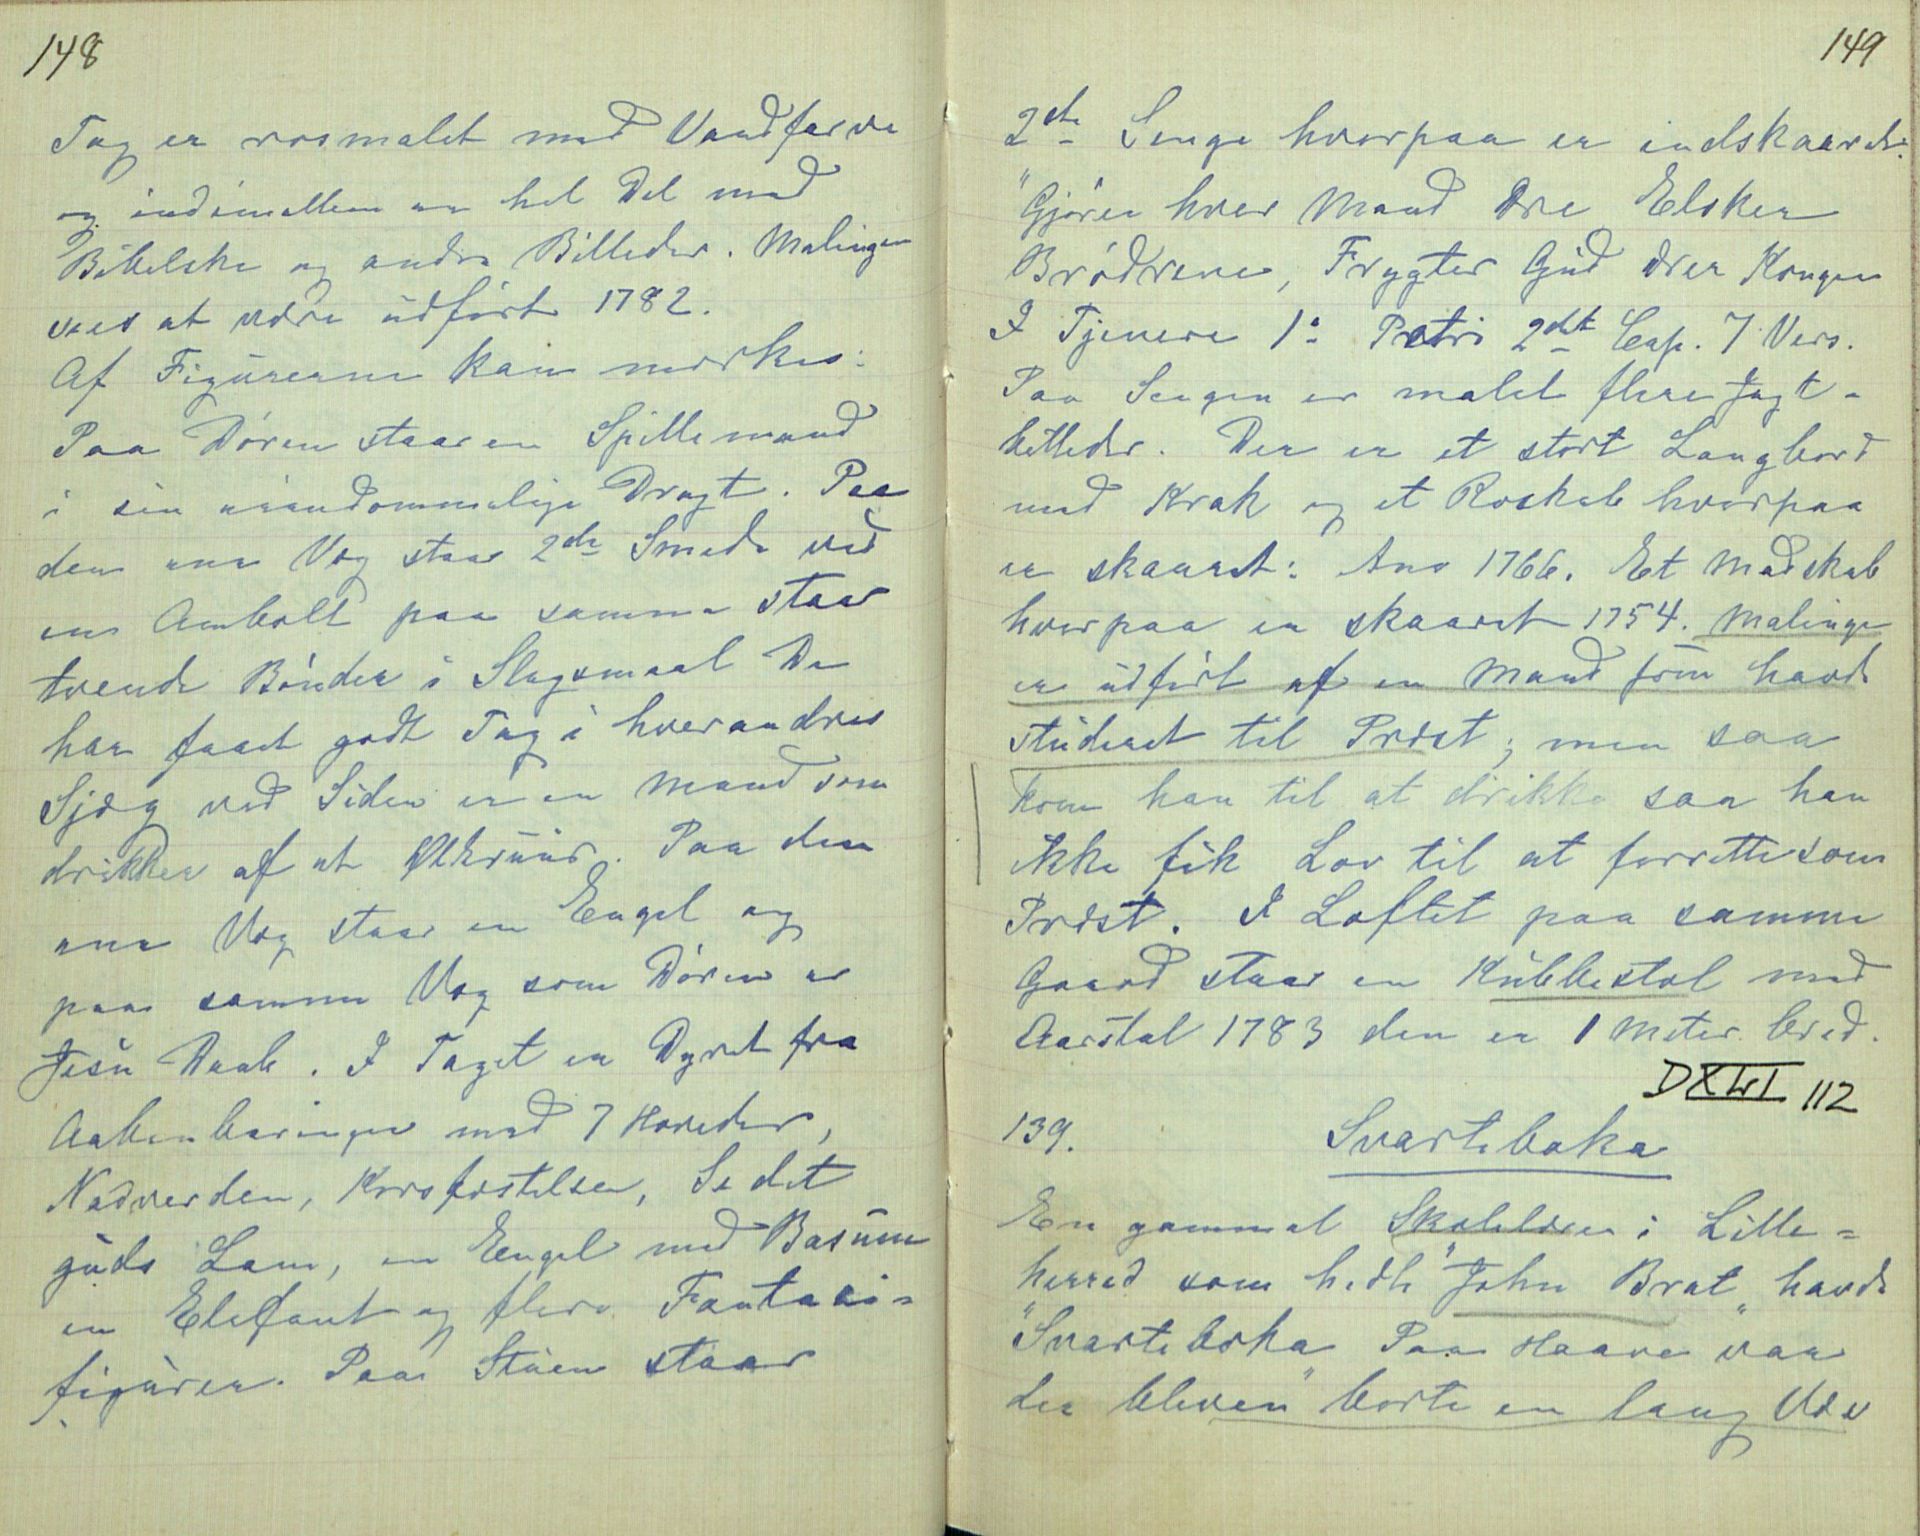 148
Tag er rosmalet med Vandfarve
og indimellem en hel Del med
Bibelske og andre Billeder. Malingen
sees at være udført 1782.
Af Figurerne kan merkes:
Paa Døren staar en Spillemand
i sin eiendommelige Dragt. Paa
den ene Væg staar 2de Smede ved
en Ambolt paa samme staar
tvende Bønder i Slagsmaal De
har faaet godt Tag i hverandres
Sjæg ved Siden er en Mand som
drikker af et Ølkruus. Paa den
ene Væg staar en Engel og
paa samme Væg som Døren er
Jesu Daab. I Taget er Dyret fra
Aabenbaringen med 7 Hoveder,
Nadverden, Korsfæstelsen, Se det
guds Lam, en Engel med Basun
en Elefant og flere Fantasi=
figurer. Paa Stuen staar
149
2de Senge hvorpaa er indskaaret:
"Gjører hver Mand Ære Elsker
Brødrene, Frygter Gud ærer Kongen
I Tjenere 1: Petri 2det Cap. 7 Vers.
Paa Sengen er malet flere Jagt-
billeder. Der er et stort Langbord
med Krak og et Roskab hvorpaa
er skaaret: Ano 1766. Et Madskab
hvorpaa er skaaret 1754. Malinge
er udført af en Mand som havde
studeret til Præst; men saa
kom han til at drikke saa han
ikke fik Lov til at forrette som
Præst. I Loftet paa samme
Gaard staar en Kubbestol med
Aarstal 1783 den er 1 Meter bred.
DXLVI 112
139. Svarteboka
En gammel Skolelærer i Lille=
herred som hedte "John Brat" havde
"Svarteboka Paa Haave var
der bleven" borte en lang Væv